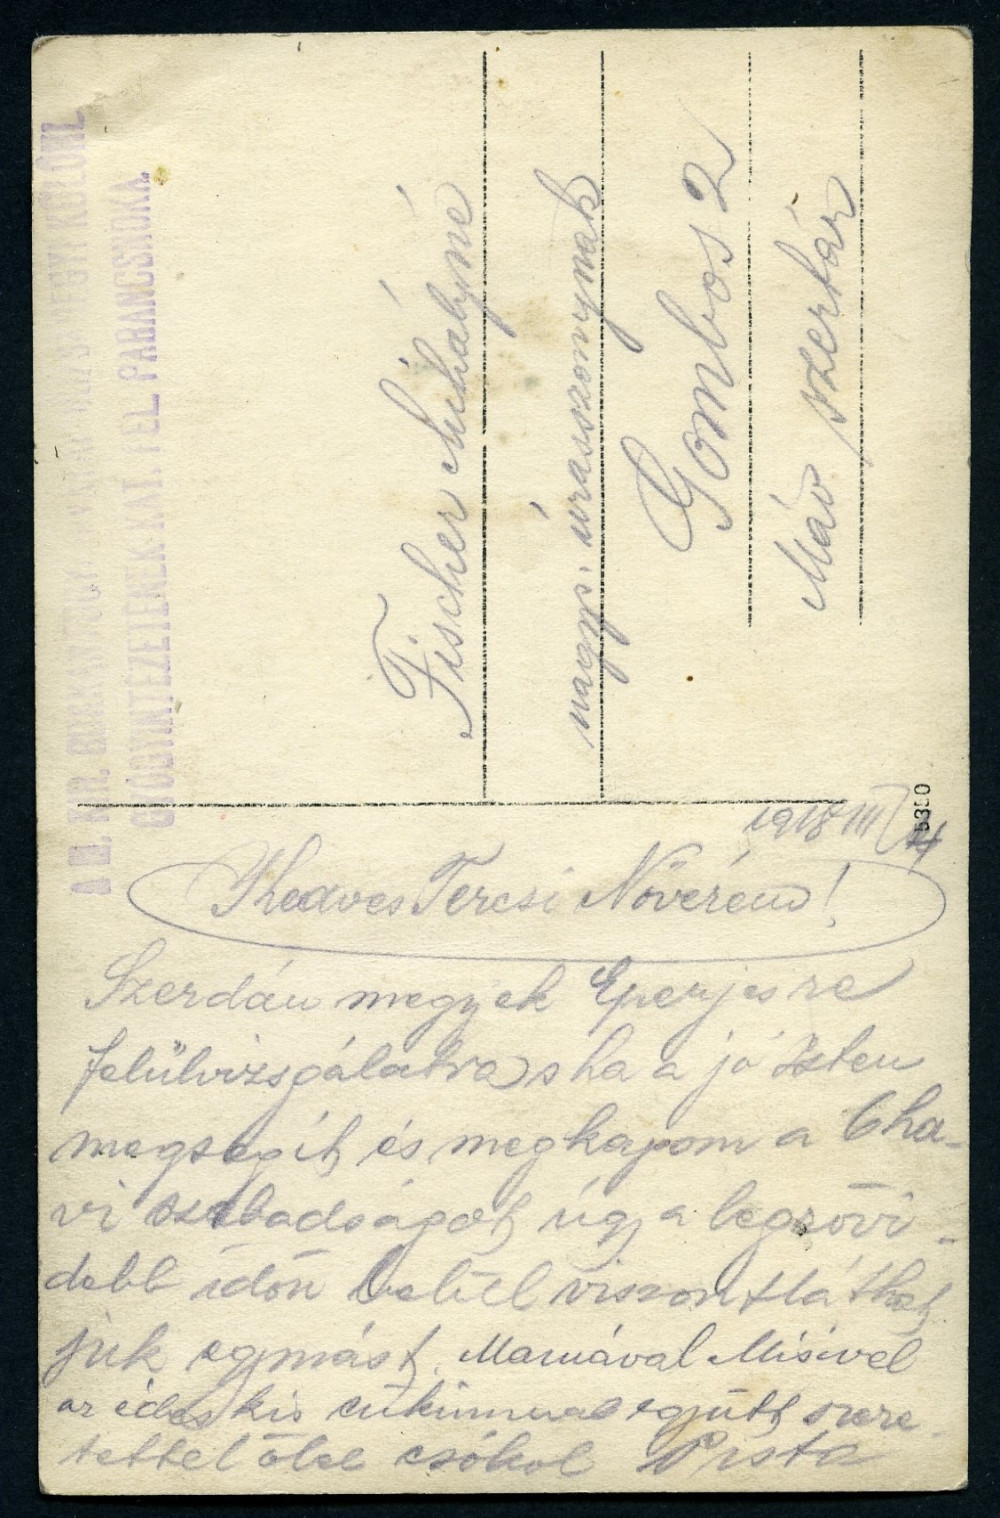 GYÓGYINTÉZETEINEK KAT. FEL. PARANCSNOKA.
Fischer Mihályné
nagys. úrasszonynak
Gombos 2
Máv szertár
5350
1918 III/4
Kedves Tercsi Nővérem!
Szerdán megyek Eperjesre
felülvizsgálatra s ha a jó Isten
megsegít és megkapom a 6 ha-
vi szabadságot úgy a legrövi-
debb időn belül viszontláthat
juk egymást. Mamával Misivel
az édes kis együtt szere
tettel ölel csókol Pista